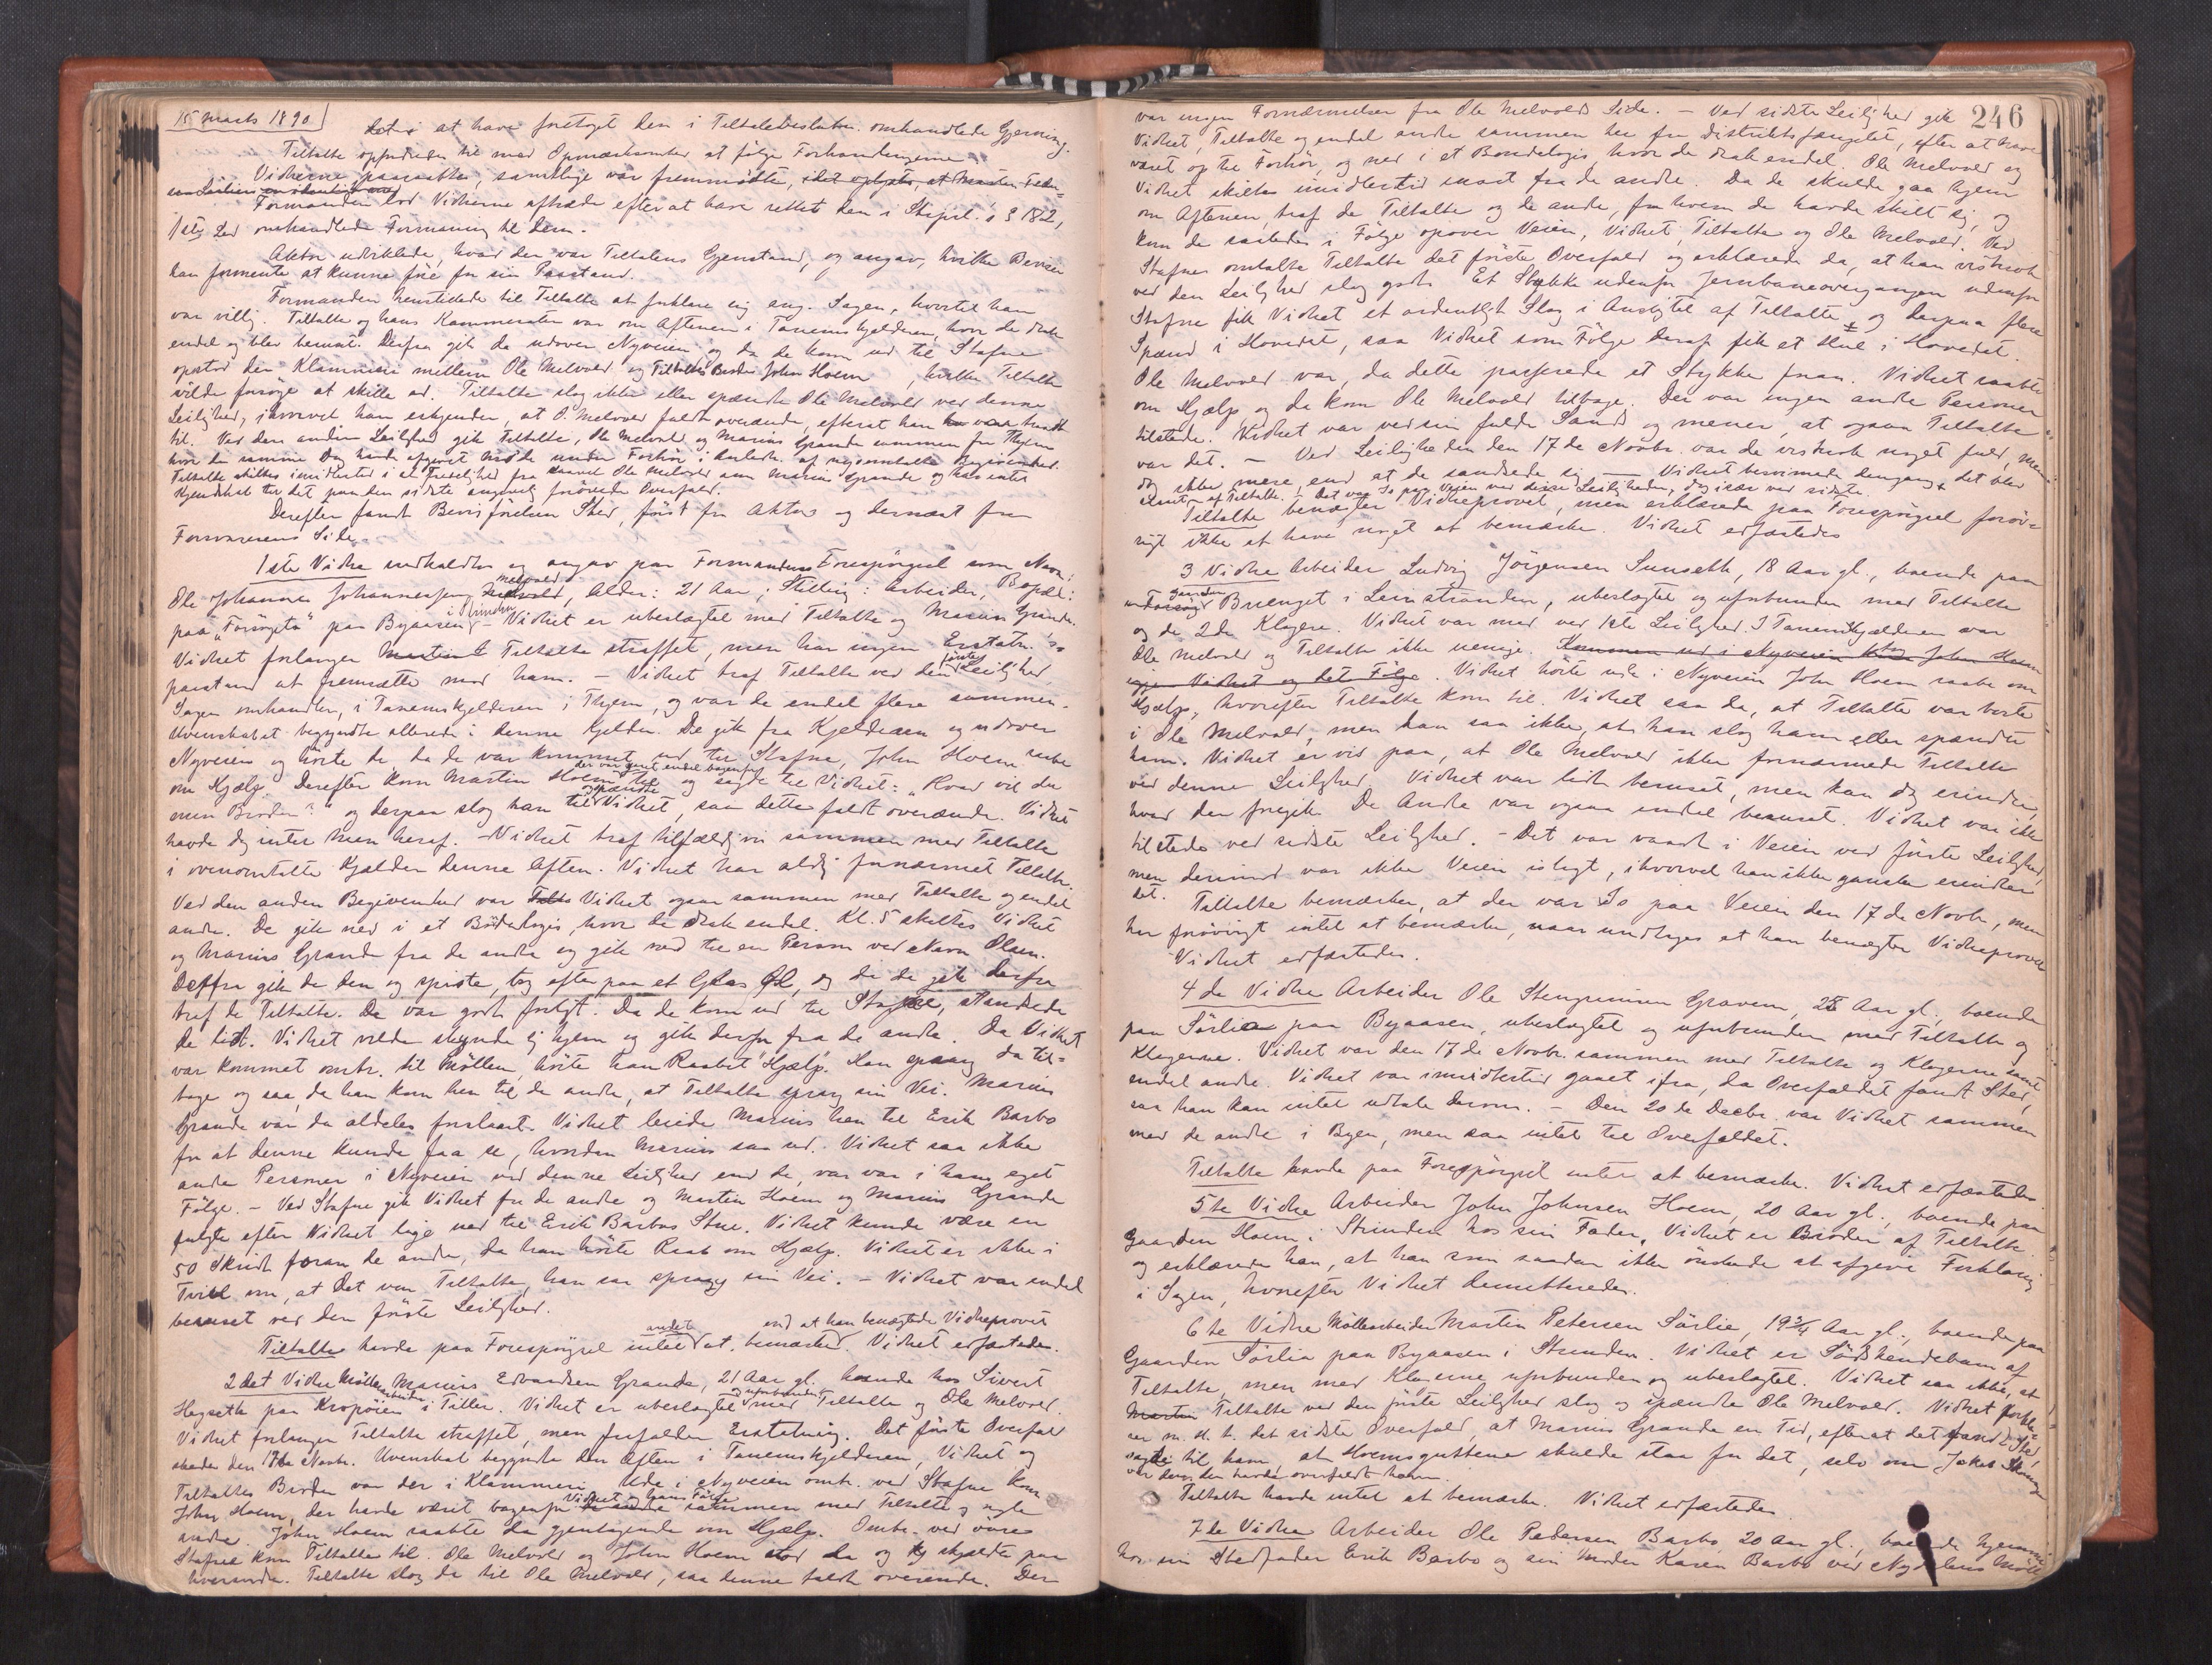 15 marts 1890
det i at have foretaget den i Tiltalebeslutn. omhandlede Gjerning.
Tiltalte opfordredes til med Opmærksomhed at følge Forhandlingerne.
Vidnerne paaraabtes, samtlige var fremmødte, idet oplystes, at Martin
Formanden lod Vidnerne aftræde efter at have rettet den i Strfprl. s § 182,
1ste Led omhandlede Formaning til dem.
Aktor udviklede, hvad der var Tiltalens Gjenstand, og angav, hvilke Beviser
han formente at kunne føre for sin Paastand.
Formanden henstillede til Tiltalte at forklare sig ang. Sagen, hvortil han
var villig. Tiltalte og hans Kammerater var om Aftenen i Tanemskjelderen, hvor de drak
endel og blev beruset. Derfra gik de udover Nyveien og da de kom ud til Stafne
opstod der Klammeri mellem Ole Melvold og Tiltaltes Broder John Hoem, hvilke Tiltalte
vilde forsøge at skille ad. Tiltalte slog ikke eller spændte Ole Melvold ved denne
Leilighed, ihvorvel han erkjender, at O. Melvold faldt overænde, efterat han
til. Ved den anden Leilighed gik Tiltalte, Ole Melvold og Marius Grande sammen fra Byen
hvor de samme Dag havde afgivet Møde under Forhør i Anledn. af nysomtalte Begivenhed.
Tiltalte skiltes imidlertid i al Fredelighed fra saavel Ole Melvold som Marius Grande og har intet
Kjendskab til det paa den sidste angivelig forøvede Overfald.
Derefter fandt Bevisførelsen Sted, først fra Aktors og dernæst fra
Forsvarerens Side.
1ste Vidne indkaldtes og angav paa Formandens Forespørgsel som Navn:
Ole Johannes Johannessen Melvold, Alder: 21 Aar, Stilling: Arbeider, Bopæl:
paa "Forsøget" paa Byaasen i Strinden – Vidnet er ubeslægtet med Tiltalte og Marius Grande.
Vidnet forlanger Tiltalte straffet, men har ingen Erstatn.s
paastand at fremsætte mod ham. – Vidnet traf Tiltalte ved den første Leilighed,
Sagen omhandler, i Tanemskjelderen i Byen, og var de endel flere sammen.
Uvenskabet begyndte allerede i denne Kjelder. De gik fra Kjelderen og udover
Nyveien og hørte de, da de var kommet ud til Stafne, John Hoem raabe
om Hjælp. Derefter kom Martin Hoem, der var gaaet endel bagenfor, til og sagde til Vidnet: "Hvad vil du
min Broder?" og derpaa slog han og spændte til Vidnet, saa dette faldt overænde. Vidnet
havde dog intet Men heraf. – Vidnet traf tilfældigvis sammen med Tiltalte
i ovenomtalte Kjelder denne Aften. Vidnet har aldrig fornærmet Tiltalte.
Ved den anden Begivenhed var Vidnet ogsaa sammen med Tiltalte og endel
andre. De gik ned i et Bøndelogis, hvor de drak endel. Kl. 5 skiltes Vidnet
og Marius Grande fra de andre og gik ned til en Person ved Navn Olsen.
Derfra gik de hen og spiste, tog efterpaa et Glas Øl, og da de gik derfra
traf de Tiltalte. Da var godt forligt. Da de kom ud til Stafne, standsede
de lidt. Vidnet vilde skynde sig hjem og gik derfor fra de andre. Da Vidnet
var kommet omtr. til Møllen, hørte han Raabet "Hjælp". Han sprang da til-
bage og saa, da han kom hen til de andre, at Tiltalte sprang sin Vei. Marius
Grande var da aldeles forslaaet. Vidnet leiede Marius hen til Erik Barbo
for at denne kunde faa se, hvordan Marius saa ud. Vidnet saa ikke
andre Personer i Nyveien ved denne Leilighed end de, var var i hans eget
Følge. – Ved Stafne gik Vidnet fra de andre og Martin Hoem og Marius Grande
fulgte efter Vidnet lige ned til Erik Barbos Stue. Vidnet kunde være en
50 Skridt foran de andre, da han hørte Raab om Hjælp. Vidnet er ikke i
Tvivl om, at det var Tiltalte, han saa sprang sin Vei. – Vidnet var endel
beruset ved den første Leilighed.
Tiltalte havde paa Forespørgsel intet andet at bemærke end at han benægtede Vidneprovet. Vidnet erfæstedes.
2det Vidne Møllearbeider Marius Edvardsen Grande, 21 Aar gl. boende hos Sivert
Hegseth paa Kropøien i Tiller. Vidnet er ubeslægtet og uforbunden med Tiltalte og Ole Melvold.
Vidnet forlanger Tiltalte straffet, men frafalder Erstatning. Det første Overfald
skede den 17de Novbr. Uvenskab begyndte den Aften i Tanemskjelderen, Vidnet og
Tiltaltes Broder var der i Klammeri. Ude i Nyveien omtr. ved Stafne kom
John Hoem, der havde været bagenfor Vidnet og hans Følge sammen med Tiltalte og nogle
andre. John Hoem raabte da gjentagende om Hjælp. Omtr. ved øvre
Stafne kom Tiltalte til. Ole Melvold og John Hoem stod da og skjældte paa
hverandre. Tiltalte slog da til Ole Melvold, saa denne faldt overende. Der
246
var ingen Fornærmelser fra Ole Melvolds Side. – Ved sidste Leilighed gik
Vidnet, Tiltalte og endel andre sammen her fra Distriktsfængslet, efter at have
været op til Forhør, og ned i et Bondelogis, hvor de drak endel. Ole Melvold og
Vidnet skiltes imidlertid snart fra de andre. Da de skulde gaa hjem
om Aftenen, traf de Tiltalte og de andre, fra hvem de havde skilt sig, og
kom de saaledes i Følge opover Veien, Vidnet, Tiltalte og Ole Melvold. Ved
Stafne omtalte Tiltalte det første Overfald og erklærede da, at han vistnok
ved den Leilighed slog godt. Et Stykke udenfor Jernbaneovergangen udenfor
Stafne fik Vidnet et ordentligt Slag i Ansigtet af Tiltalte, og derpaa flere
Spænd i Hovedet, saa Vidnet som Følge deraf fik et Hul i Hovedet.
Ole Melvold var, da dette passerede et Stykke foran. Vidnet raabte
om Hjælp og da kom Ole Melvold tilbage. Der var ingen andre Personer
tilstede. Vidnet var ved sin fulde Sands og mener, at ogsaa Tiltalte
var det. – Ved Leiligheden den 17de Novbr. var de vistnok noget fuld, men
dog ikke mere, end at de sandsede sig. – Vidnet besvimede dengang, det blev
slaaet af Tiltalte. – Det var Is paa Veien ved disse Leiligheder, dog især ved sidste.
Tiltalte benægter Vidneprovet, men erklærede paa Forespørgsel forøv-
rigt ikke at have noget at bemærke. Vidnet erfæstedes
3 Vidne Arbeider Ludvig Jørgensen Sunseth, 18 Aar gl., boende paa
Gaarden Bruenget i Leinstranden, ubeslægtet og uforbunden med Tiltalte
og de 2de Klagere. Vidnet var med ved 1ste Leilighed. I Tanemskjælderen var
Ole Melvold og Tiltalte ikke uenige. Kommen ud i Nyveien tog John Hoem
igjen Vidnet og det Følge. Vidnet hørte ude i Nyveien John Hoem raabe om
Hjælp, hvorefter Tiltalte kom til. Vidnet saa da, at Tiltalte var borte
i Ole Melvold, men han saa ikke, at han slog ham eller spændte
ham. Vidnet er vis paa, at Ole Melvold ikke fornærmede Tiltalte
ved denne Leilighed. Vidnet var lidt beruset, men kan dog erindre,
hvad der foregik. De Andre var ogsaa endel beruset. Vidnet var ikke
tilstede ved sidste Leilighed. – Det var vaadt i Veien ved første Leilighed,
men derimod var ikke Veien islagt, ihvorvel han ikke ganske erindrer
det.
Tiltalte bemærker, at der var Is paa Veien den 17de Novbr, men
har forøvrigt intet at bemærke, naar undtages at han benægter Vidneprovet
Vidnet erfæstedes.
4de Vidne Arbeider Ole Stengrimsen Gravem, 25 Aar gl., boende
paa Sørlia paa Byaasen, ubeslægtet og uforbunden med Tiltalte og
Klagerne. Vidnet var den 17de Novbr. sammen med Tiltalte og Klagerne samt
endel andre. Vidnet var imidlertid gaaet ifra, da Overfaldet fandt Sted,
saa han kan intet udtale derom. – Den 20de Decbr. var Vidnet sammen
med de andre i Byen, men saa intet til Overfaldet.
Tiltalte havde paa Forespørgsel intet at bemærke. Vidnet erfæstedes
5te Vidne Arbeider John Johnsen Hoem, 20 Aar gl., boende paa
Gaarden Hoem i Strinden hos sin Fader. Vidnet er Broder af Tiltalte
og erklærede han, at han som saadan ikke ønskede at afgive Forklaring
i Sagen, hvorefter Vidnet demitteredes.
6te Vidne Møllearbeider Martin Petersen Sørlie, 19¾ Aar gl., boende paa
Gaarden Sørlia paa Byaasen i Strinden. Vidnet er Sødskendebarn af
Tiltalte, men med Klagerne uforbunden og ubeslægtet. Vidnet saa ikke, at
Martin Tiltalte ved den første Leilighed slog og spændte Ole Melvold. Vidnet forkla-
rer m. H. t. det sidste Overfald, at Marius Grande en Tid, efter at det fandt Sted,
sagde til ham, at Hoemsguttene skulde staa for det, selv om Jakob
var den der havde overfaldt ham.
Tiltalte havde intet at bemærke. Vidnet erfæstedes.
7de Vidne Arbeider Ole Pedersen Barbo, 20 Aar gl., boende hjemme
hos sin Stedfader Erik Barbo og sin Moder Karen Barbo ved Nydalens Mølle